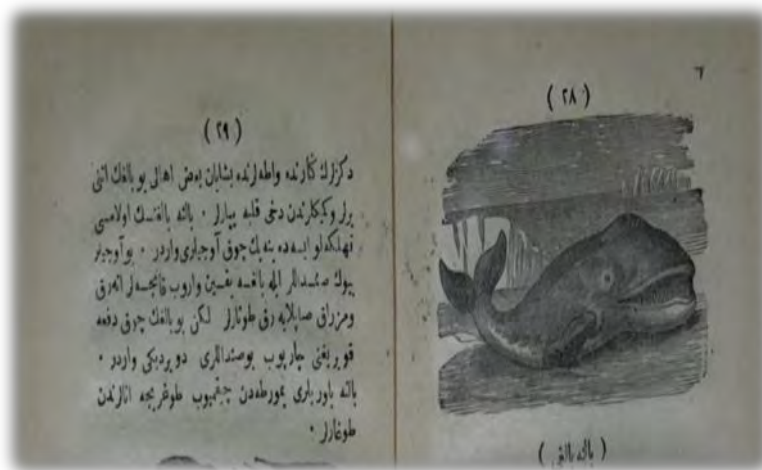 ٦
( ٢٨ )
( بالنه بالغی )
( ٢٩ )
دكزلرك كنارنده واطه‌لرنده يشايان بعض اهالی بو بالغك اتنی
يرلر وكيكلرندن دخی قلبه يپارلر ٠ بالنه بالغنك اولامسی
تهلكه‌لو ايسه‌ده ينه پك چوق آوجيلری واردر ٠ بو آوجيلر
بيوك صنداللر ايله بالغه يقين واروب قانجه‌لر اته‌رق
ومزراق صاپلايه‌رق طوتارلر لكن بو بالغك چوق دفعه
قويريغنی چارپوب بو صنداللری دويرديكی واردر ٠
بالنه ياوريلری يمورطه‌دن چيقميوب طوغريجه انالرندن
طوغارلر ٠